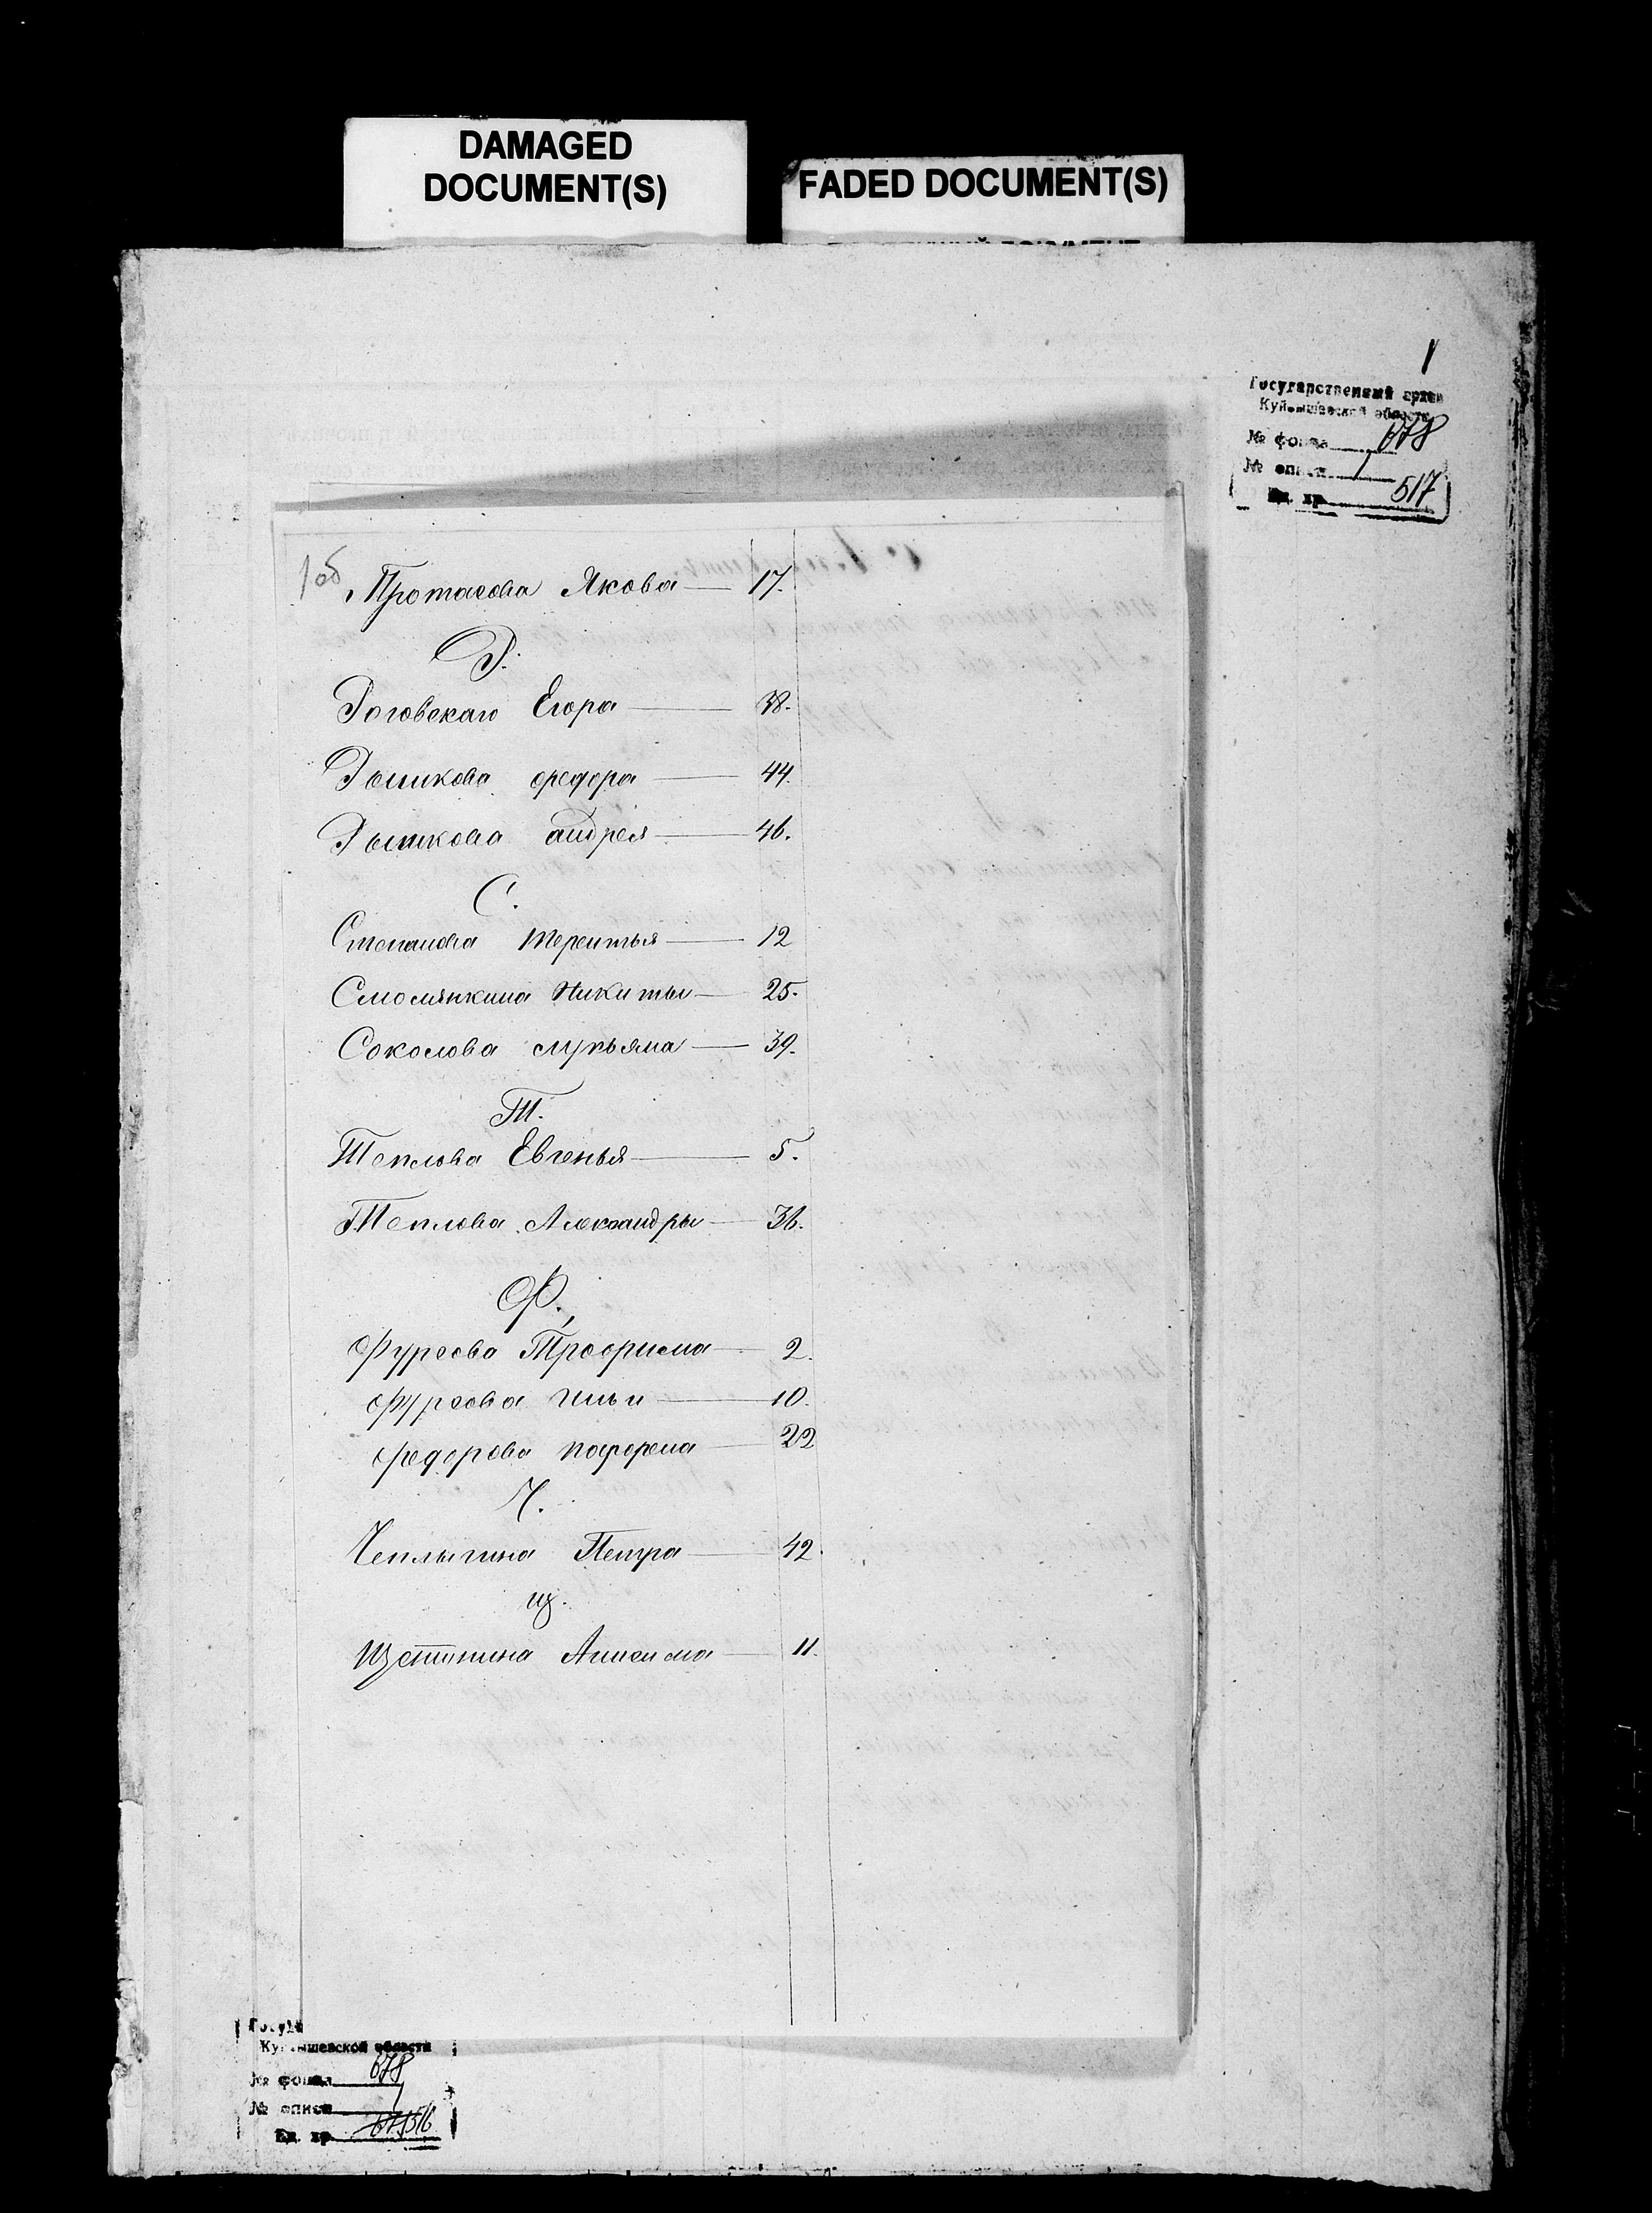 DAMAGED
DOCUMENT(S)
FADED DOCUMENT(S)
Государственный архив
Куйбышевской области
№ фонда 678
№ описи 7
Ед. хр. 517
1об
Протасова Якова — 17.
Р.
Роговскаго Егора — 38.
Рышкова Федора — 44.
Рышкова Андрея — 46.
С.
Степанова Терентья — 12
Смолянкина Никиты — 25.
Соколова Лукьяна — 39.
Т.
Теплова Евгенья — 5.
Теплова Александры — 36.
Ф.
Фурсова Трофима — 2.
Фурсова Ильи — 10.
Федорова — 22
Ч.
Чеплыгина Петра — 42.
Щ.
Щетинина Анисима — 11.
Куйбышевской области
№ фонда 678
№ описи 7
Ед. хр. 516